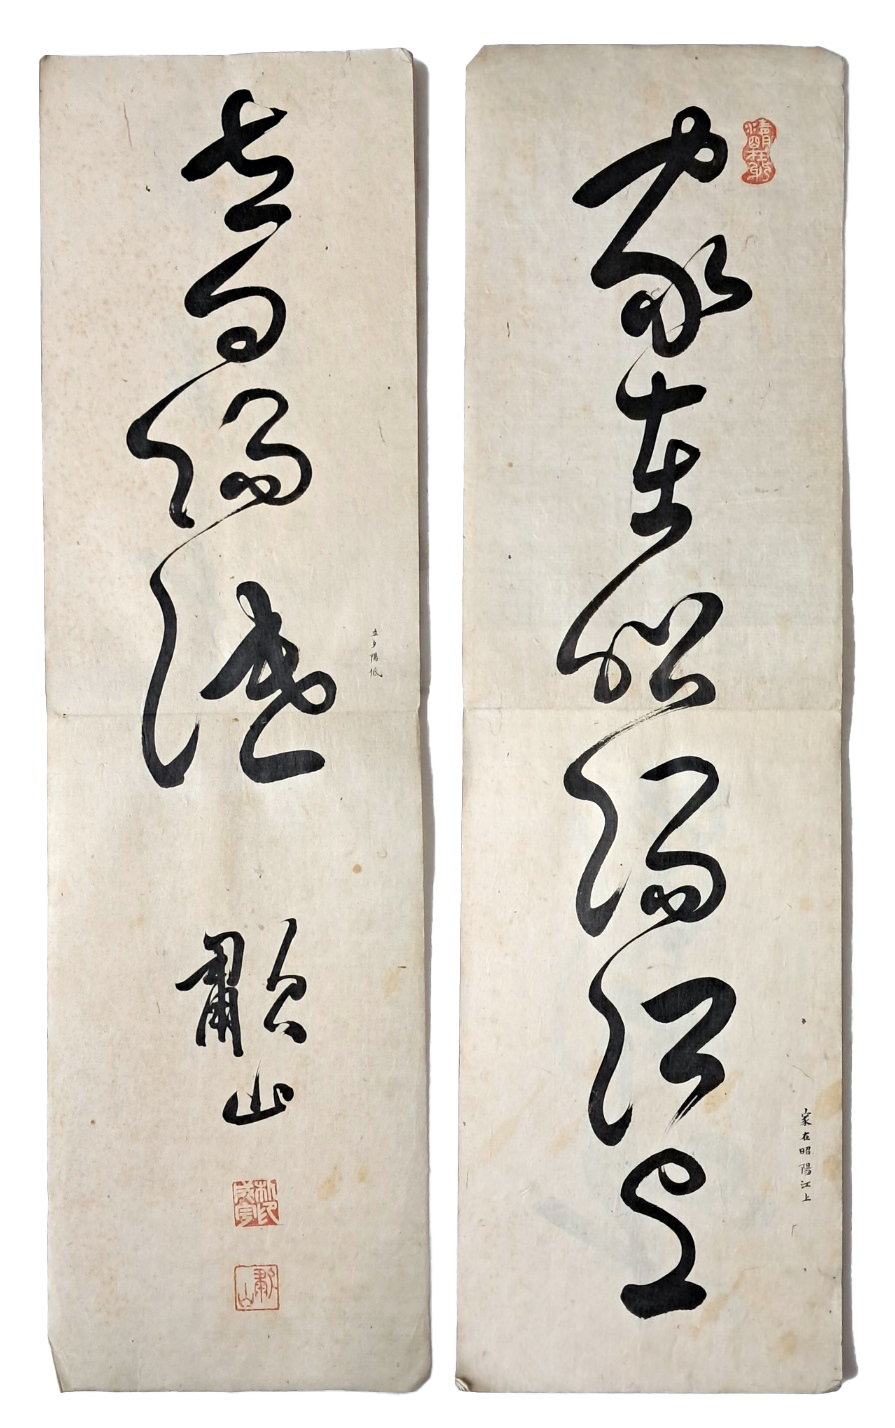 家在昭陽江上
家在昭陽江上
立夕陽低
立夕陽低
歗山